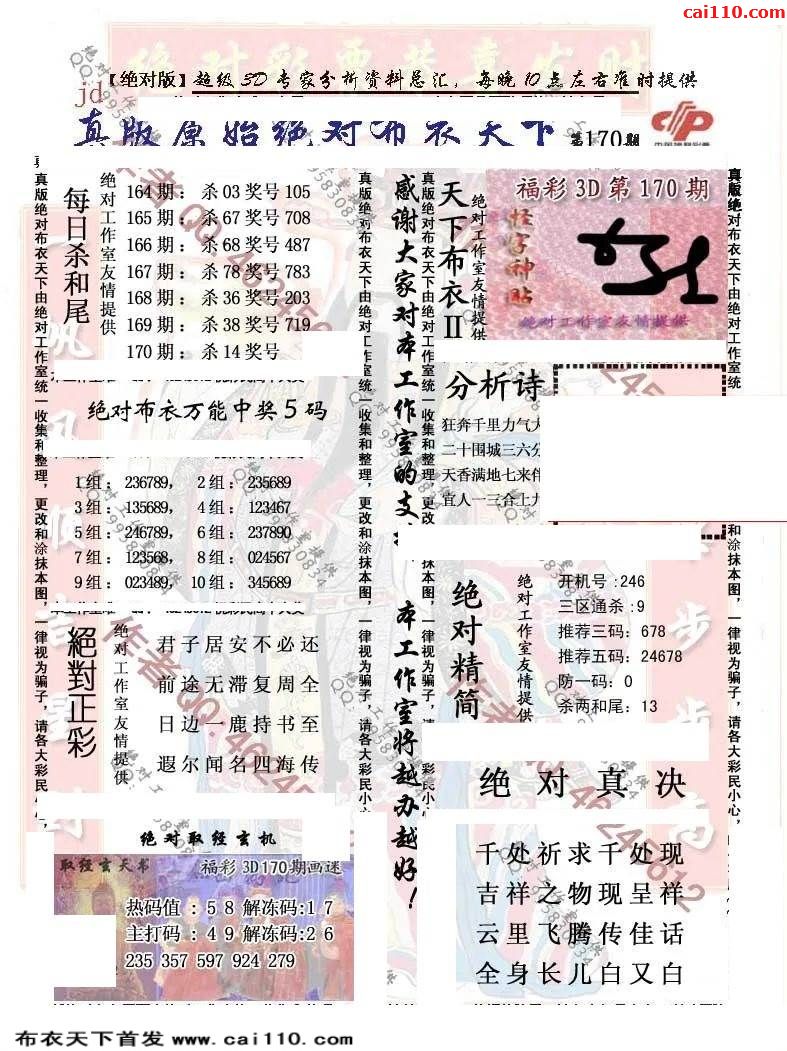 cai110.com
【绝对版】超级3D专家分析资料总汇，每晚10点左右准时提供
jd
真版原始绝对布衣天下 第170期
每日杀和尾
绝对工作室友情提供
164期：杀03奖号105
165期：杀67奖号708
166期：杀68奖号487
167期：杀78奖号783
168期：杀36奖号203
169期：杀38奖号719
170期：杀14奖号
绝对布衣万能中奖5码
1组：236789， 2组：235689
3组：135689， 4组：123467
5组：246789， 6组：237890
7组：123568， 8组：024567
9组：023489， 10组：345689
絕對正彩
绝对工作室友情提供
君子居安不必还
前途无滞复周全
日边一鹿持书至
遐尔闻名四海传
绝对取经玄机
取经玄天书 福彩3D170期画迷
热码值：58解冻码:17
主打码：49解冻码:26
235 357 597 924 279
真版绝对布衣天下由绝对工作室统一收集和整理，更改和涂抹本图，一律视为骗子，请各大彩民小心，
感谢大家对本工作室的支
本工作室将越办越好！
天下布衣II
绝对工作室友情提供
福彩3D第170期
怪字神贴
绝对工作室友情提供
分析诗
狂奔千里力气大
二十围城三六分
天香满地七来伴
宜人一三合上九
绝对精简
绝对工作室友情提供
开机号:246
三区通杀:9
推荐三码：678
推荐五码：24678
防一码：0
杀两和尾：13
绝对真决
千处祈求千处现
吉祥之物现呈祥
云里飞腾传佳话
全身长儿白又白
布衣天下首发 www.cai110.com